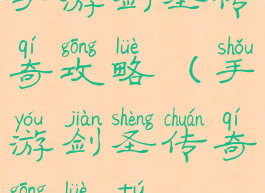 手游剑圣传
qí gōng lüè shǒu
奇攻略（手
yóu jiàn shèng chuán qí
游剑圣传奇
gōng lüè tú